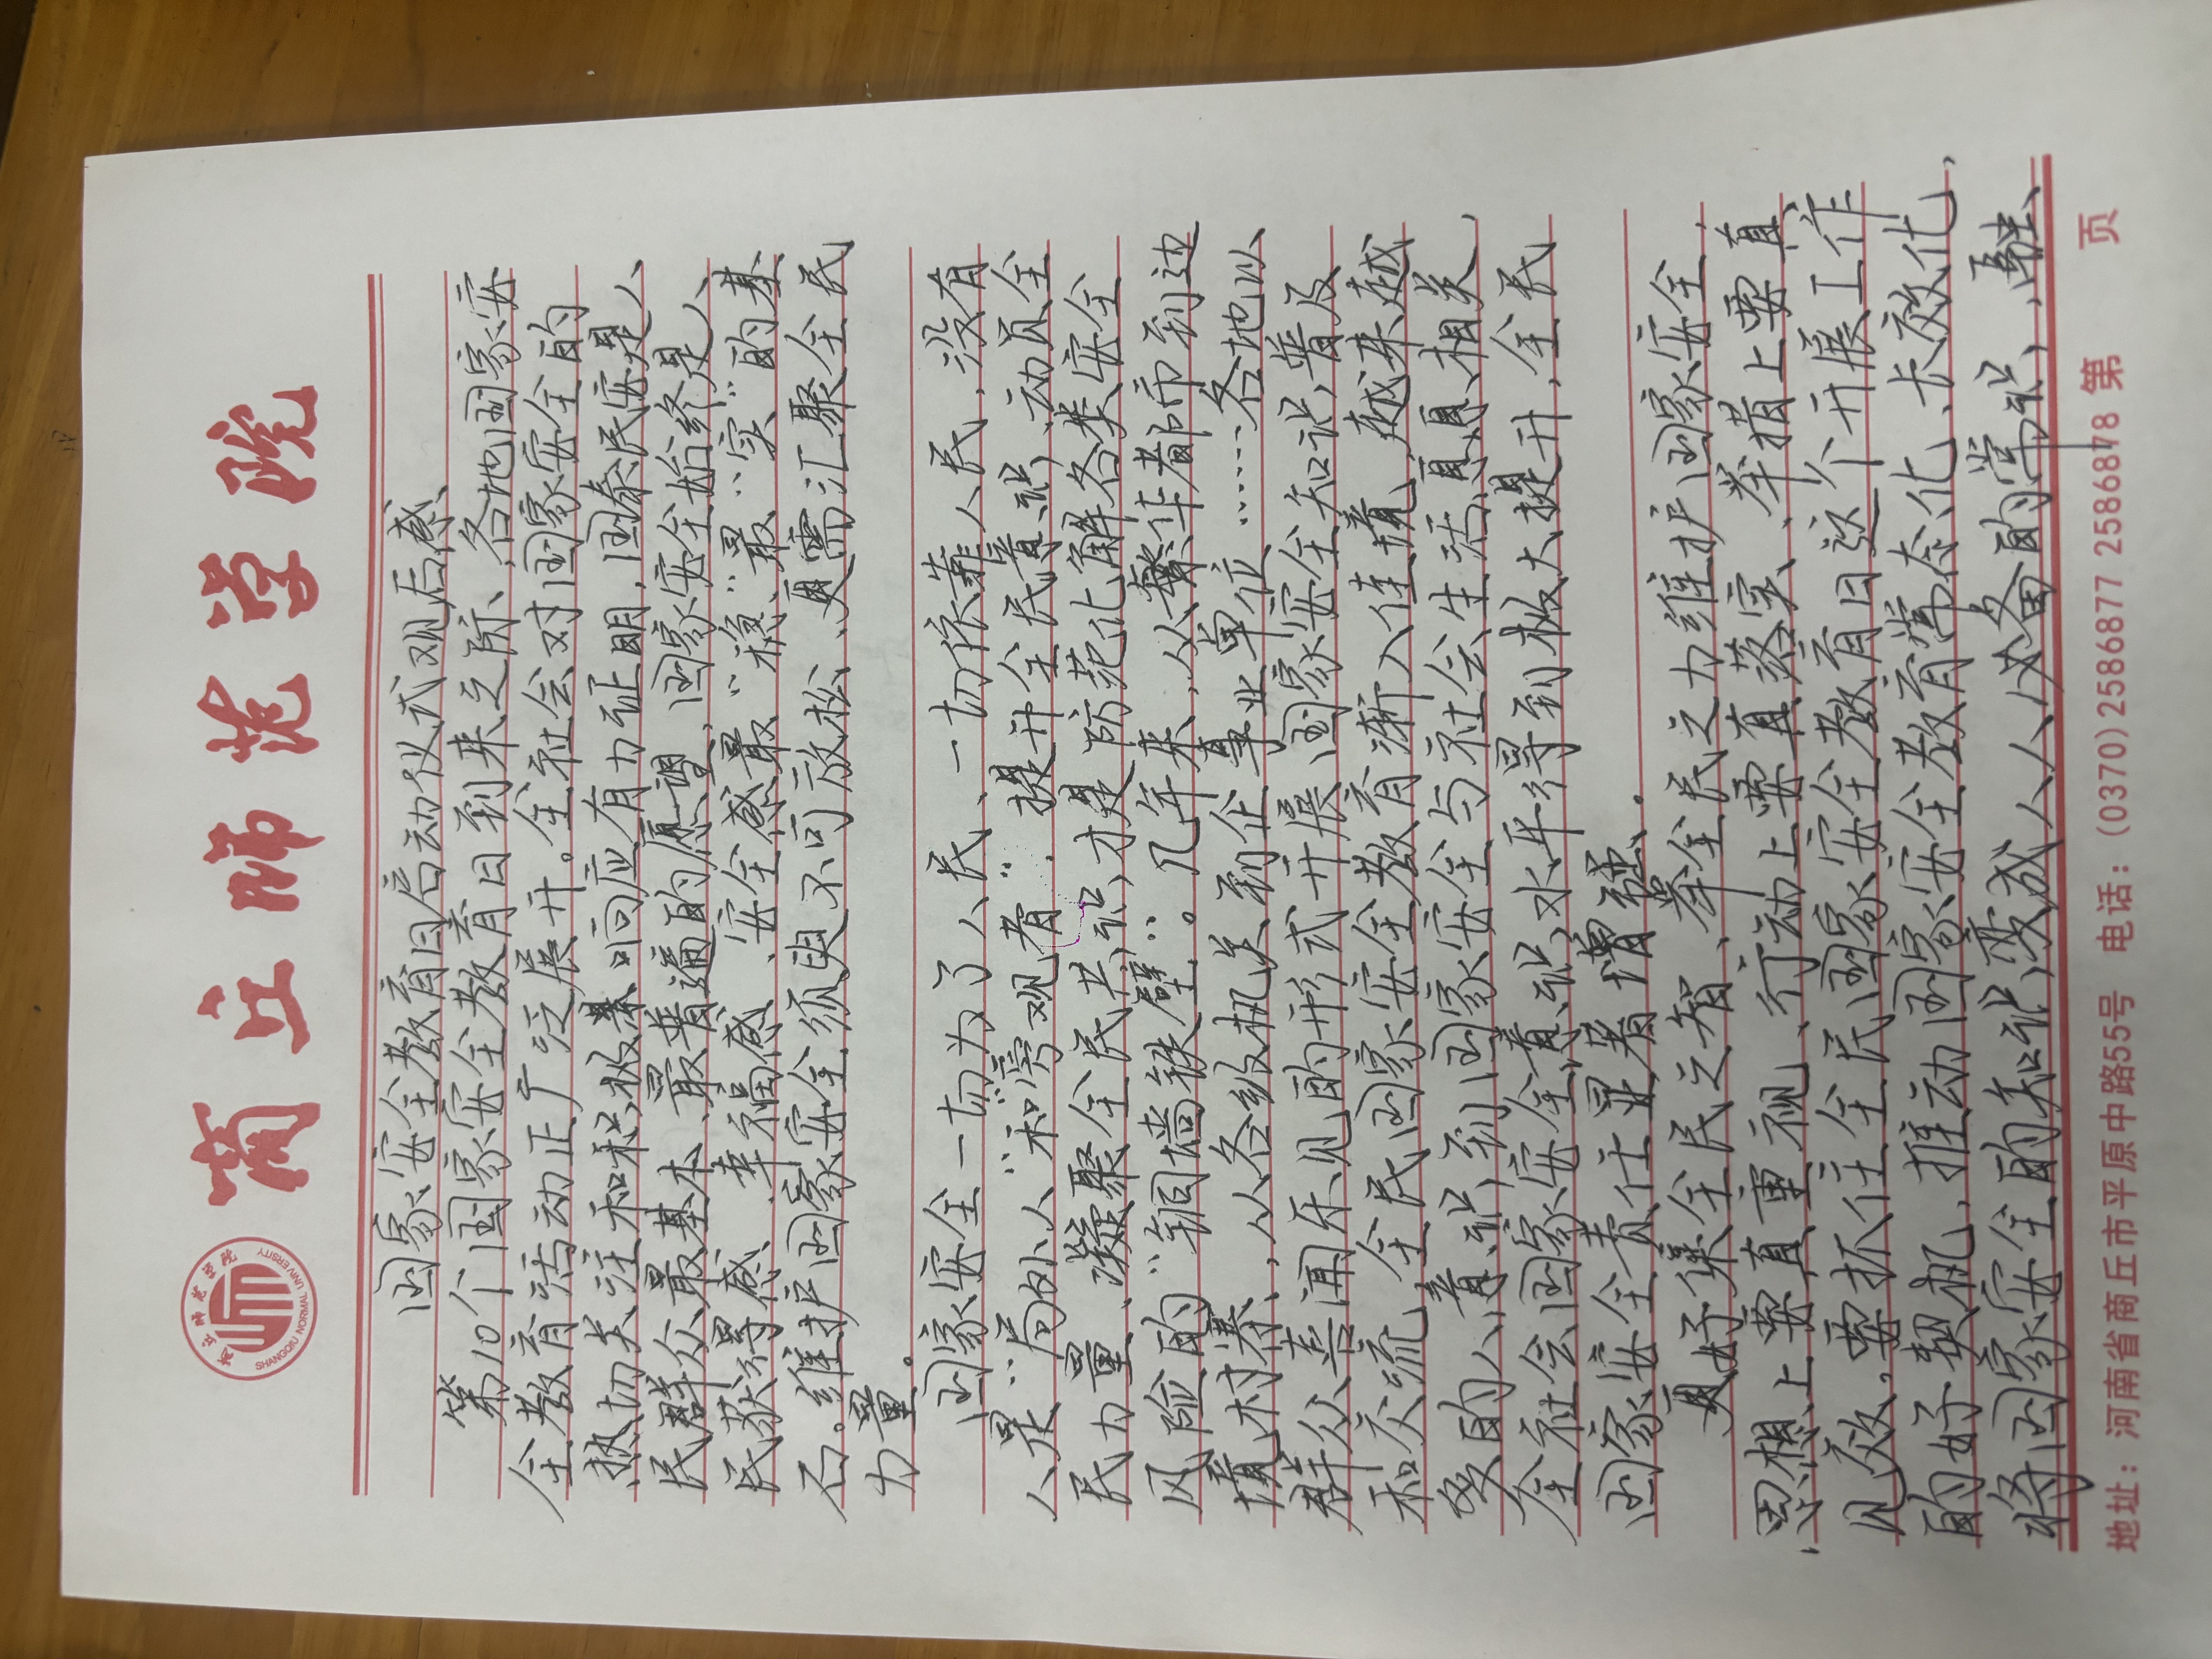 商丘师范学院
商丘师范学院
SHANGQIU NORMAL UNIVERSITY
国家安全教育日启动仪式观后感
第10个国家安全教育日到来之际、各地国家安
全教育活动正广泛展开。全社会对国家安全的
热切关注和积极响应有力证明,国泰民安是人
民群众最基本、最普遍的愿望,国家安全始终是人
民获得感、幸福感、安全感最“稳”、最“实”的基
石。维护国家安全须臾不可放松、更需汇聚全民
力量。
国家安全一切为了人民、一切依靠人民,没有
人是“局外人”和“旁观者”.提升全民意识,动员全
民力量、凝聚全民共识,才是防范化解各类安全
风险的“铜墙铁壁”。几年来,从繁华都市到边
境村寨、从各级机关到企事业单位……各地以
群众喜闻乐见的形式开展国家安全知识,普及
和交流,全民国家安全教育渐入佳境,越来越
多的人意识到国家安全与社会生活息息相关,
全社会国家安全意识水平得到极大提升,全民
国家安全责任显著增强。
更好集全民之智、举全民之力维护国家安全,
思想上要真重视、行动上要真落实、举措上要真
见效。要抓住全民国家安全教育日这个开展工作
的好契机,推动国家安全教育常态化、长效化,
将国家安全的知识,变成人人必备的常识,融
地址:河南省商丘市平原中路55号 电话:(0370)2586877 2586878 第 页